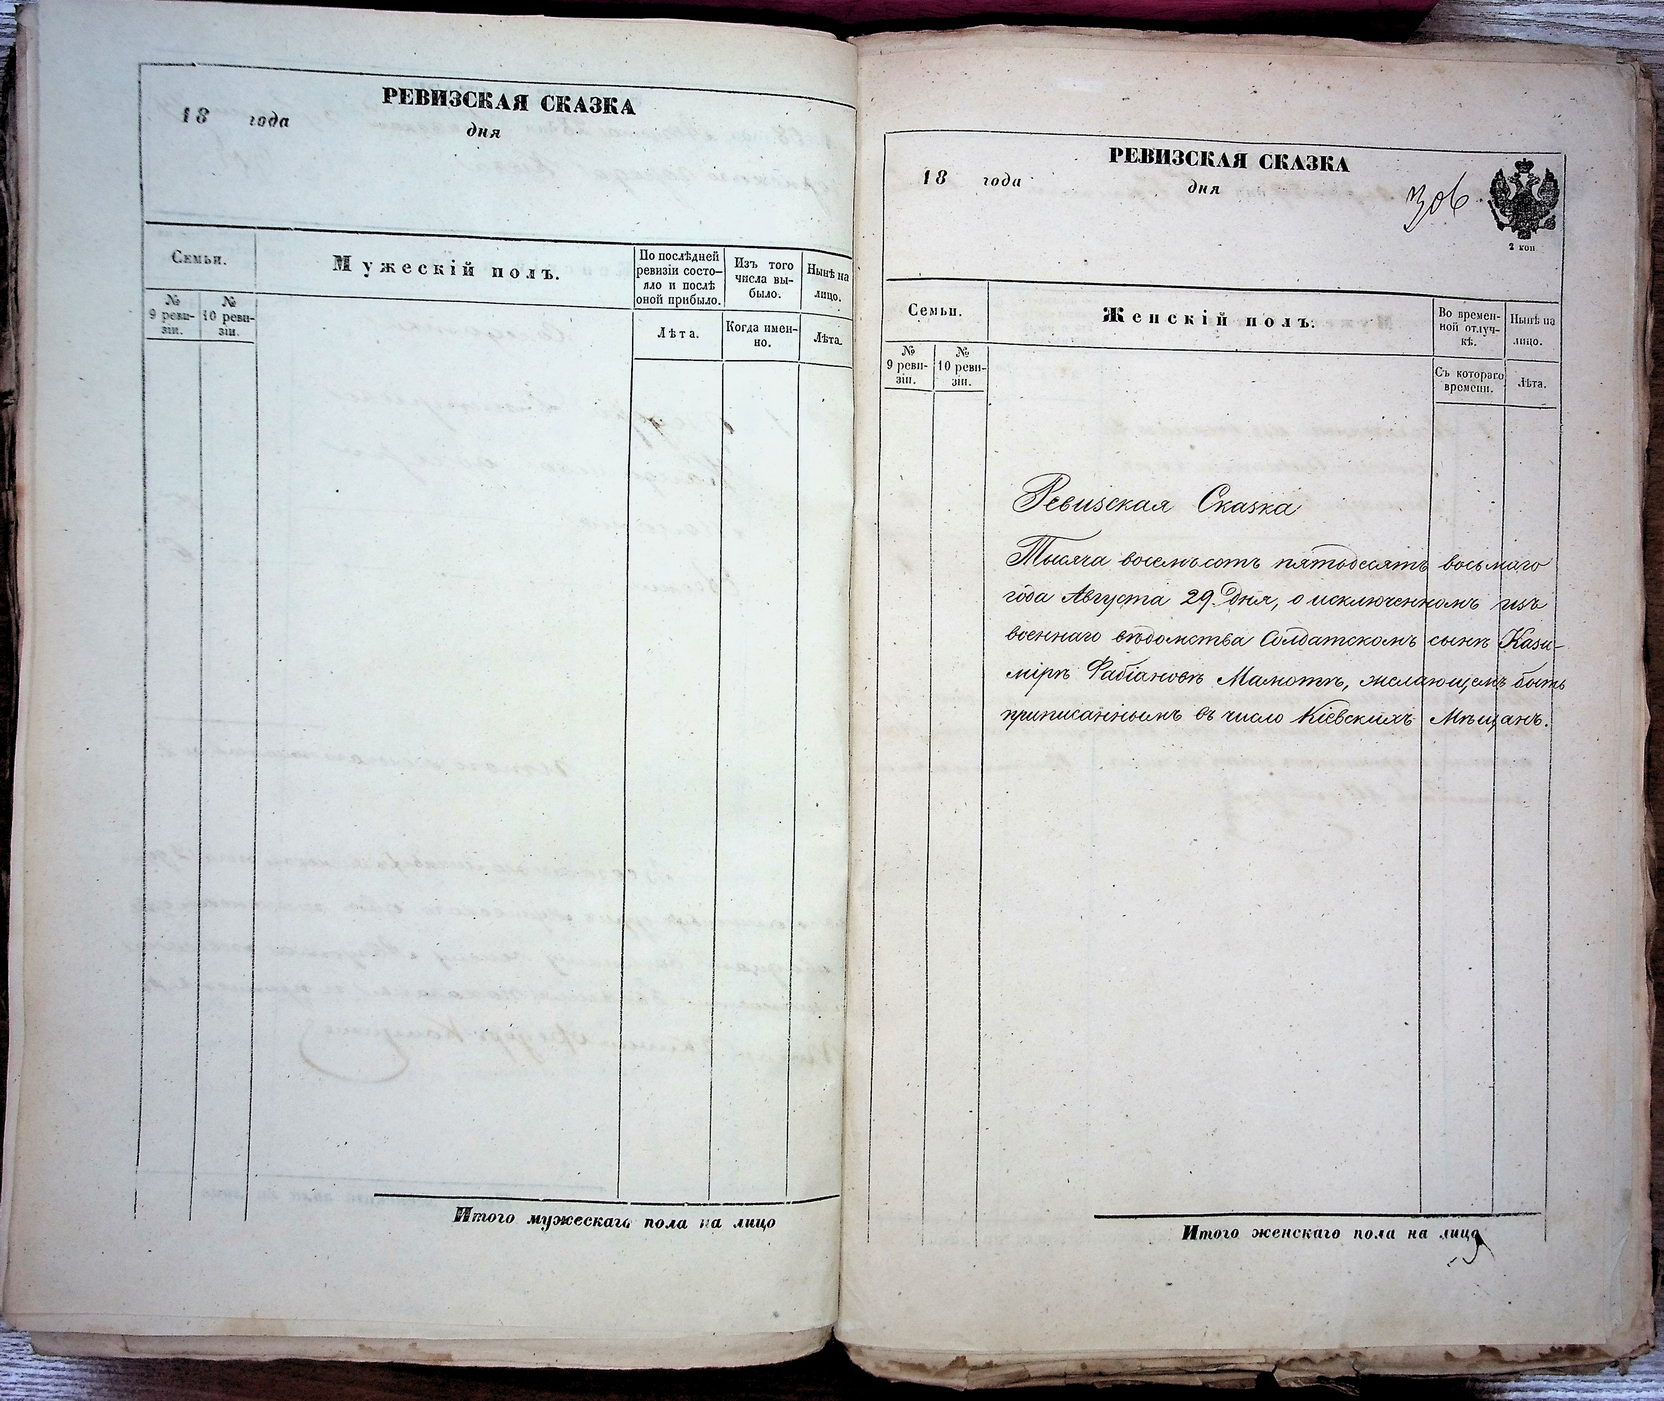 РЕВИЗСКАЯ СКАЗКА
18 года
дня
Семьи.
Мужескій полъ.
По послѣдней ревизіи состояло и послѣ оной прибыло.
Изъ того числа выбыло.
Нынѣ на лицо.
№ 9 ревизіи.
№ 10 ревизіи.
Лѣта.
Когда именно.
Лѣта.
Итого мужескаго пола на лицо
РЕВИЗСКАЯ СКАЗКА
18 года
дня
306
2 коп
Семьи.
Женскій полъ.
Во временной отлучкѣ.
Нынѣ на лицо.
№ 9 ревизіи.
№ 10 ревизіи.
Съ котораго времени.
Лѣта.
Ревизская Сказка
Тысяча восемьсотъ пятьдесятъ восьмаго
года Августа 29 Дня, о исключенномъ изъ
военнаго вѣдомства Солдатскомъ сынѣ Кази-
мірѣ Фабіановѣ Мамотъ, желающемъ быть
приписаннымъ въ число Кіевскихъ Мѣщанъ.
Итого женскаго пола на лицо